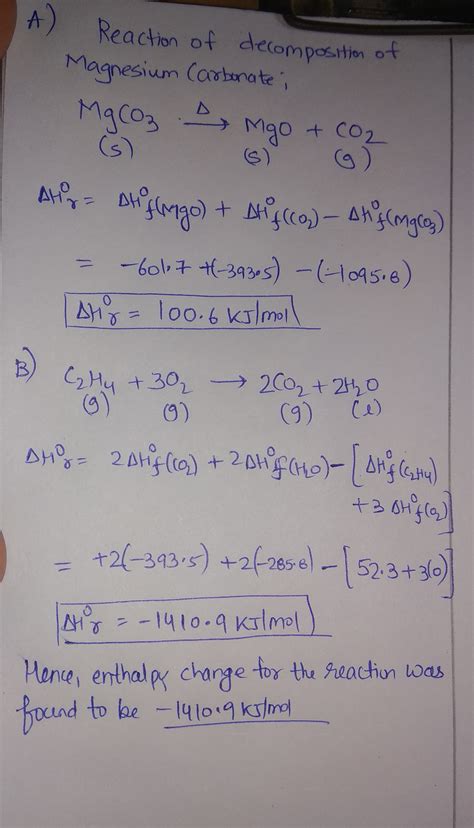 A) Reaction of decomposition of
Magnesium Carbonate;
MgCO3 Δ→ MgO + CO2
(s) (s) (g)
ΔH°r = ΔH°f(MgO) + ΔH°f(CO2) – ΔH°f(MgCO3)
= –601.7 +(–393.5) – (–1095.8)
ΔH°r = 100.6 KJ/mol
B) C2H4 + 3O2 → 2CO2 + 2H2O
(g) (g) (g) (l)
ΔH°r = 2ΔH°f(CO2) + 2ΔH°f(H2O) – [ΔH°f(C2H4)
+3 ΔH°f(O2)]
= +2(–393.5) +2(–285.8) – [52.3+3(0)]
ΔH°r = –1410.9 KJ/mol
Hence, enthalpy change for the reaction was
found to be –1410.9 KJ/mol